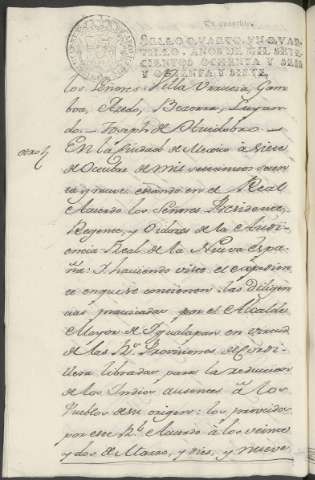 SELLO QUARTO, UN QUAR-
TILLO, AÑOS DE MIL SETE-
CIENTOS OCHENTA Y SEIS
Y OCHENTA Y SIETE.
los Señores Villa Urrutia, Gam
boa, Bezerra,
do. Joseph de
En la Ciudad de Mexico à Siete
de Octubre de mil setecientos
ta y nueve estando en el Real
Acuerdo los Señores Presidente,
Regente, y Oidores de la Audi-
encia Real de la Nueva Espa-
ña: Haviendo visto el expedien
te en que se contienen las Diligen
cias practicadas por el Alcalde
Mayor de Igualapan en virtud
de las Rs Provisiones de Cordi-
llera libradas para la reduccion
de los Indios ausentes à los
Pueblos de su origen: lo proveido
por este Rl Acuerdo à los veinte
y dos de Marzo, y diez, y nueve